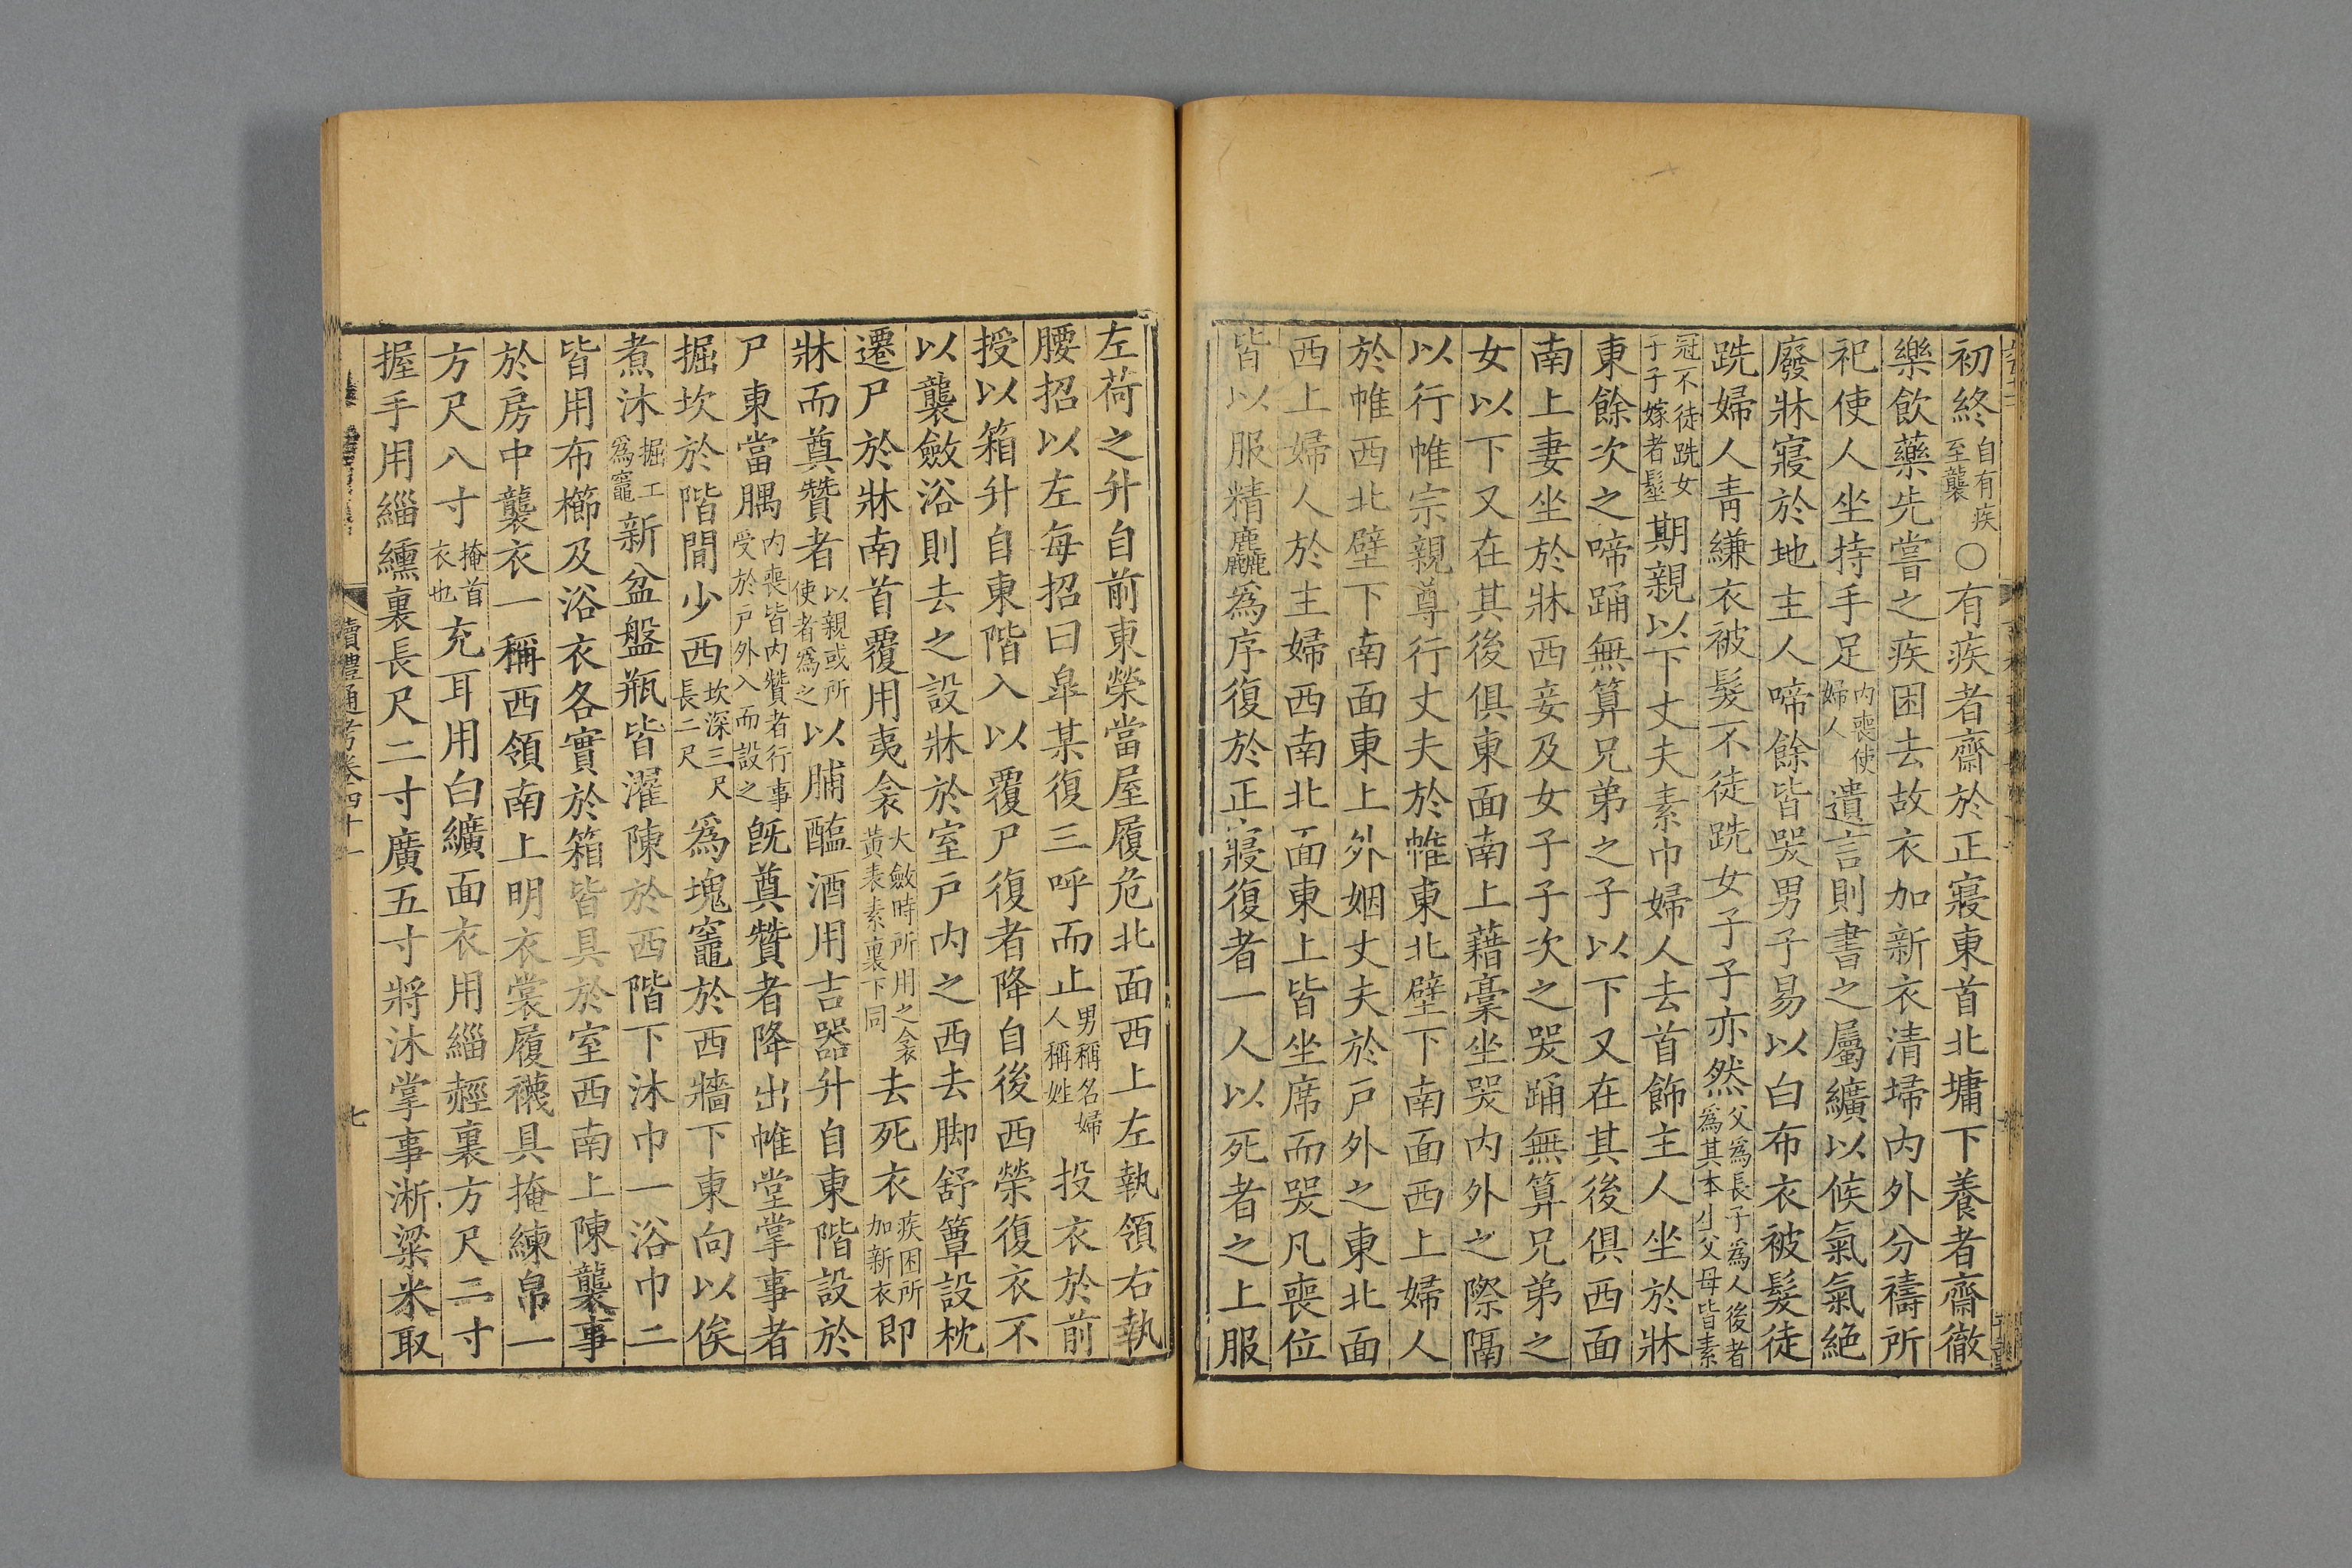 初終自有疾至襲○有疾者齋於正寢東首北墉下養者齋徹
樂飲藥先嘗之疾困去故衣加新衣清埽内外分禱所
祀使人坐持手足内喪使婦人遺言則書之屬纊以候氣氣絶
廢牀寢於地主人啼餘皆哭男子易以白布衣被髮徒
跣婦人青縑衣被髮不徒跣女子子亦然父爲長子爲人後者爲其本小父母皆素
冠不徒跣女子子嫁者髽期親以下丈夫素巾婦人去首飾主人坐於牀
東餘次之啼踊無算兄弟之子以下又在其後俱西面
南上妻坐於牀西妾及女子子次之哭踊無算兄弟之
女以下又在其後俱東面南上藉藁坐哭内外之際隔
以行帷宗親尊行丈夫於帷東北壁下南面西上婦人
於帷西北壁下南面東上外姻丈夫於戸外之東北面
西上婦人於主婦西南北面東上皆坐席而哭凡喪位
皆以服精麤爲序復於正寢復者一人以死者之上服
左荷之升自前東榮當屋履危北面西上左執領右執
腰招以左每招曰臯某復三呼而止男稱名婦人稱姓投衣於前
授以箱升自東階入以覆尸復者降自後西榮復衣不
以襲斂浴則去之設牀於室戸内之西去脚舒簟設枕
遷尸於牀南首覆用夷衾大斂時所用之衾黄表素裏下同去死衣疾困所加新衣即
牀而奠贊者以親或所使者爲之以脯醢酒用吉器升自東階設於
尸東當腢内喪皆内贊者行事受於戸外入而設之旣奠贊者降出帷堂掌事者
掘坎於階間少西坎深三尺長二尺爲塊竈於西牆下東向以俟
煮沐掘工爲竈新盆盤瓶皆濯陳於西階下沐巾一浴巾二
皆用布櫛及浴衣各實於箱皆具於室西南上陳襲事
於房中襲衣一稱西領南上明衣裳履襪具掩練帛一
方尺八寸掩首衣也充耳用白纊面衣用緇䞓裏方尺二寸
握手用緇纁裏長尺二寸廣五寸將沐掌事淅粱米取
讀禮通考卷四十一
七